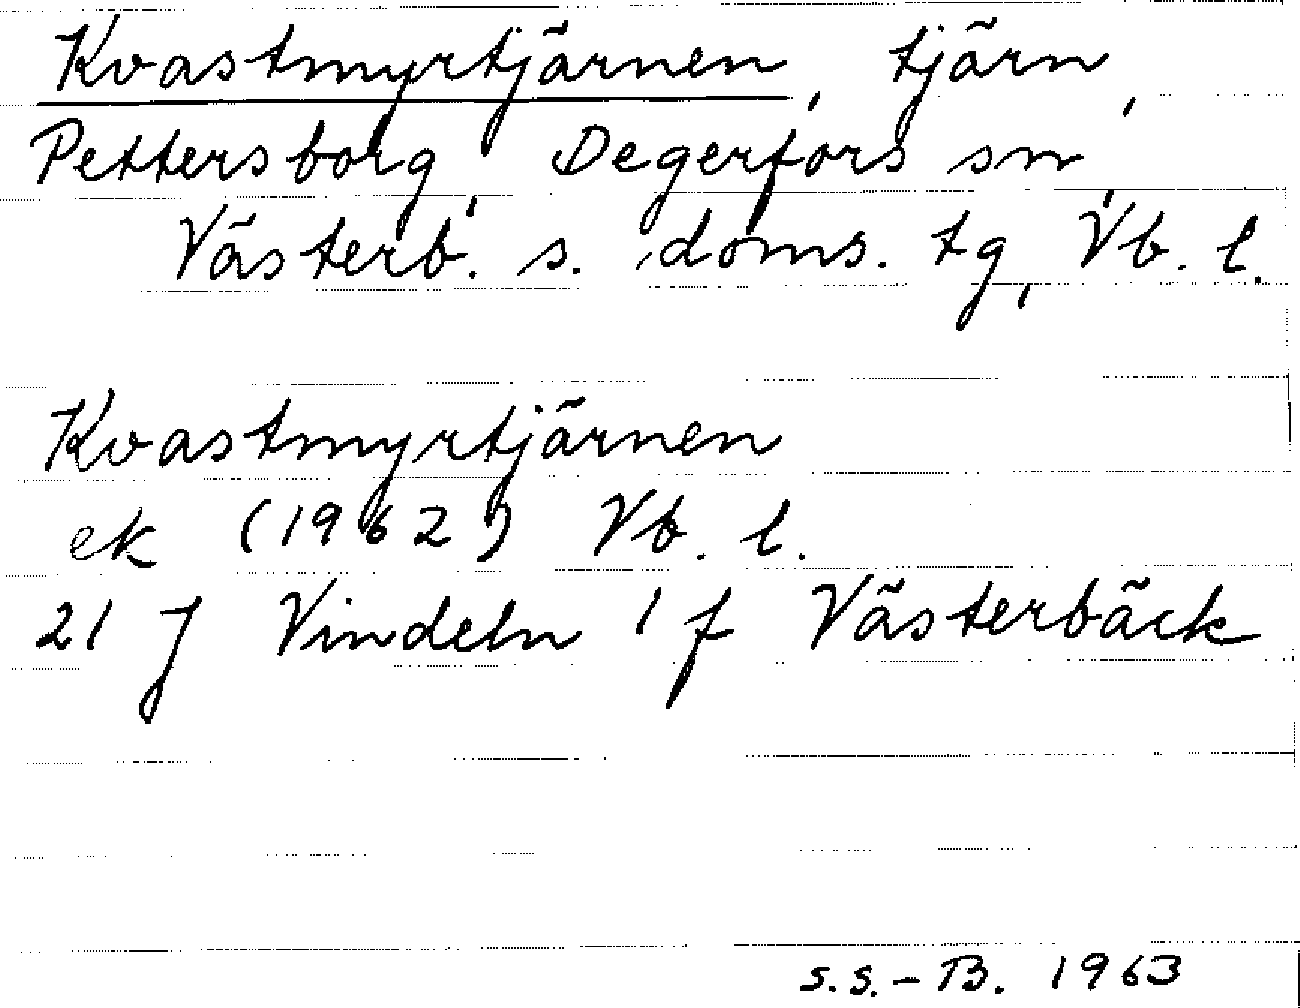 Kvastmyrtjärnen, tjärn,
Pettersborg, Degerfors sn,
Västerb. s. doms. tg, Vb. l.
Kvastmyrtjärnen
ek (1962) Vb. l.
21 J Vindeln 1 f Västerbäck
S.S.-B. 1963